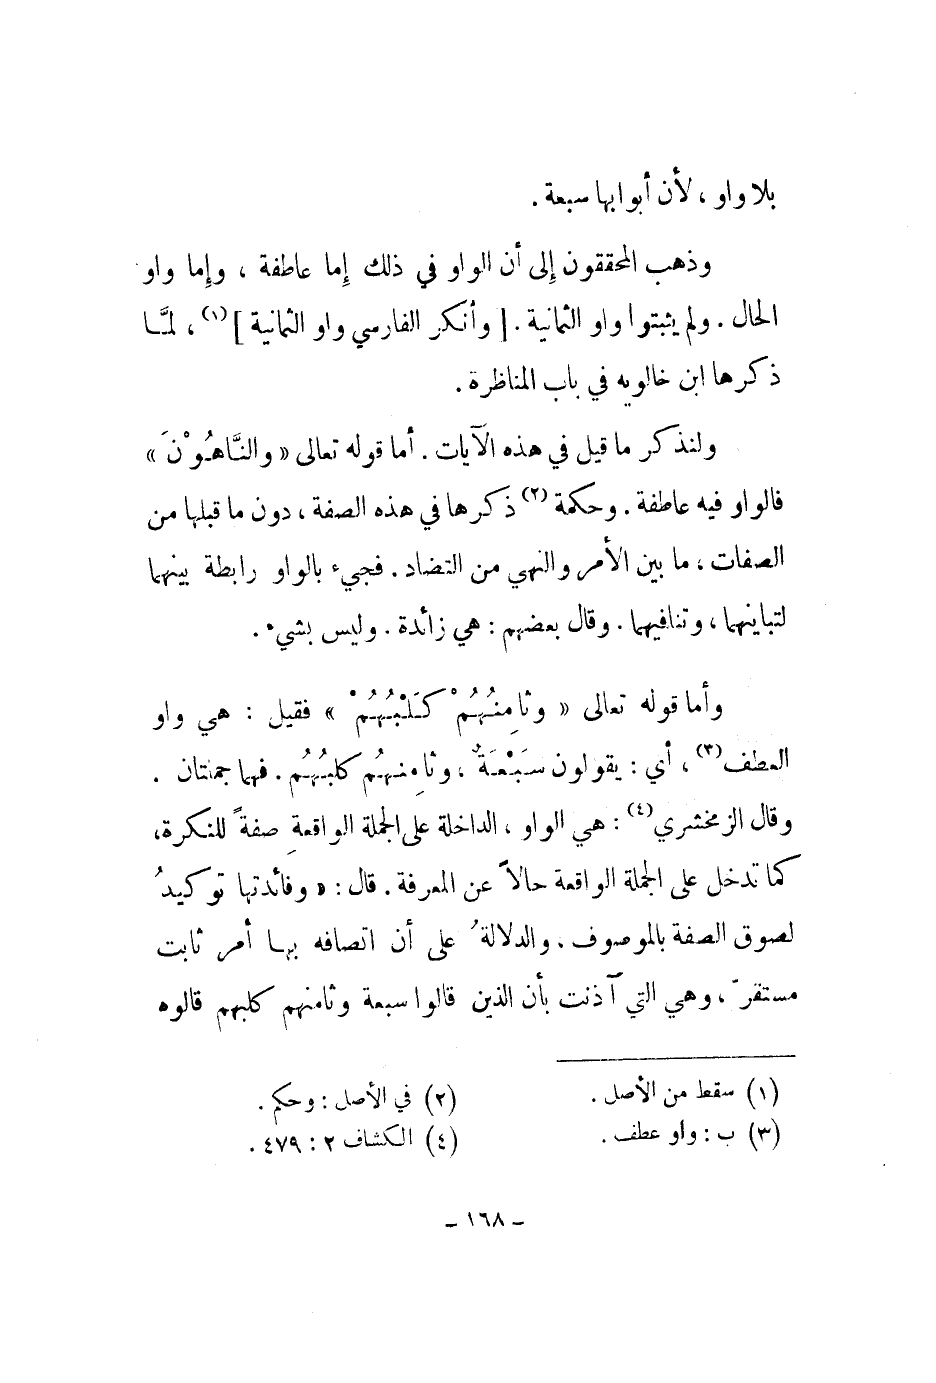 بلا واو ، لأن أبوابها سبعة .
وذهب المحققون إلى أن الواو في ذلك إما عاطفة ، وإما واو
الحال . ولم يثبتوا واو الثمانية . [ وأنكر الفارسي واو الثمانية ](١) ، لمَّـا
ذكرها ابن خالويه في باب المناظرة .
ولنذكر ما قيل في هذه الآيات . أما قوله تعالى « والنَّاهُوْنَ »
فالواو فيه عاطفة . وحكمة (٢) ذكرها في هذه الصفة ، دون ما قبلها من
الصفات ، ما بين الأمر والنهي من التضاد . فجيء بالواو رابطة بينهما
لتباينهما ، وتنافيهما . وقال بعضهم : هي زائدة . وليس بشيء .
وأما قوله تعالى « وثامِنُهُمْ كَلْبُهُمْ » فقيل : هي واو
العطف(٣) ، أي : يقولون سَبْعَةٌ ، وثامِنهُم كلبُهُم . فهما جملتان .
وقال الزمخشري(٤) : هي الواو ، الداخلة على الجملة الواقعةِ صفةً للنكرة،
كما تدخل على الجملة الواقعة حالاً عن المعرفة . قال : « وفائدتها توكيدُ
لصوق الصفة بالموصوف ، والدلالةُ على أن اتصافه بهـا أمر ثابت
مستقرّ ، وهي التي آذنت بأن الذين قالوا سبعة وثامنهم كلبهم قالوه
(١) سقط من الأصل . (٢) في الأصل : وحكم .
(٣) ب : واو عطف . (٤) الكشاف ٢ : ٤٧٩ .
– ١٦٨ –